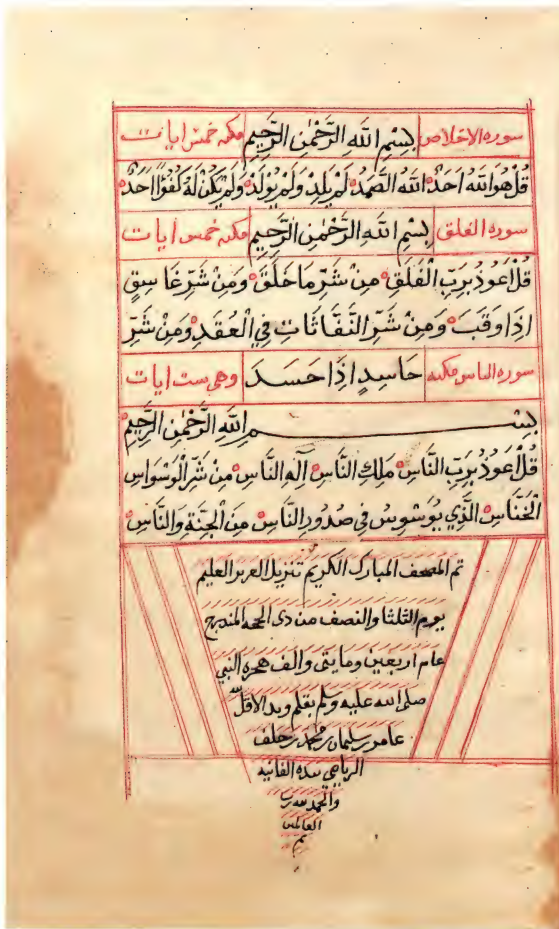 سورة الاخلاص بِسْمِ اللهِ الرَّحْمٰنِ الرَّحِيمِ مكيه خمس ايات
قُلْ هُوَ اللهُ اَحَدٌ اَللهُ الصَّمَدُ لَمْ يَلِدْ وَلَمْ يُوْلَدْ وَلَمْ يَكُنْ لَهُ كُفُوًا اَحَدٌ
سورة الفلق بِسْمِ اللهِ الرَّحْمٰنِ الرَّحِيمِ مكيه خمس ايات
قُلْ اَعُوذُ بِرَبِّ الْفَلَقِ مِنْ شَرِّ مَا خَلَقَ وَمِنْ شَرِّ غَاسِقٍ
اِذَا وَقَبَ وَمِنْ شَرِّ النَّفَّاثَاتِ فِي الْعُقَدِ وَمِنْ شَرِّ
سورة الناس مكيه حَاسِدٍ اِذَا حَسَدَ وهي ست ايات
بِسْمِ اللهِ الرَّحْمٰنِ الرَّحِيمِ
قُلْ اَعُوذُ بِرَبِّ النَّاسِ مَلِكِ النَّاسِ اِلٰهِ النَّاسِ مِنْ شَرِّ الْوَسْوَاسِ
الْخَنَّاسِ الَّذِي يُوَسْوِسُ فِي صُدُورِ النَّاسِ مِنَ الْجِنَّةِ وَالنَّاسِ
تم المصحف المبارك الكريم تنزيل العزيز العليم
يوم الثلثا والنصف من ذي الحجه
عام اربعين ومايتى والف هجره النبي
صلى الله عليه وسلم بقلم ويد الاقل
عامر بن سليمان بن محمد بن خلف
الريامي بيده الفانيه
والحمد لله رب
العالمين
تم